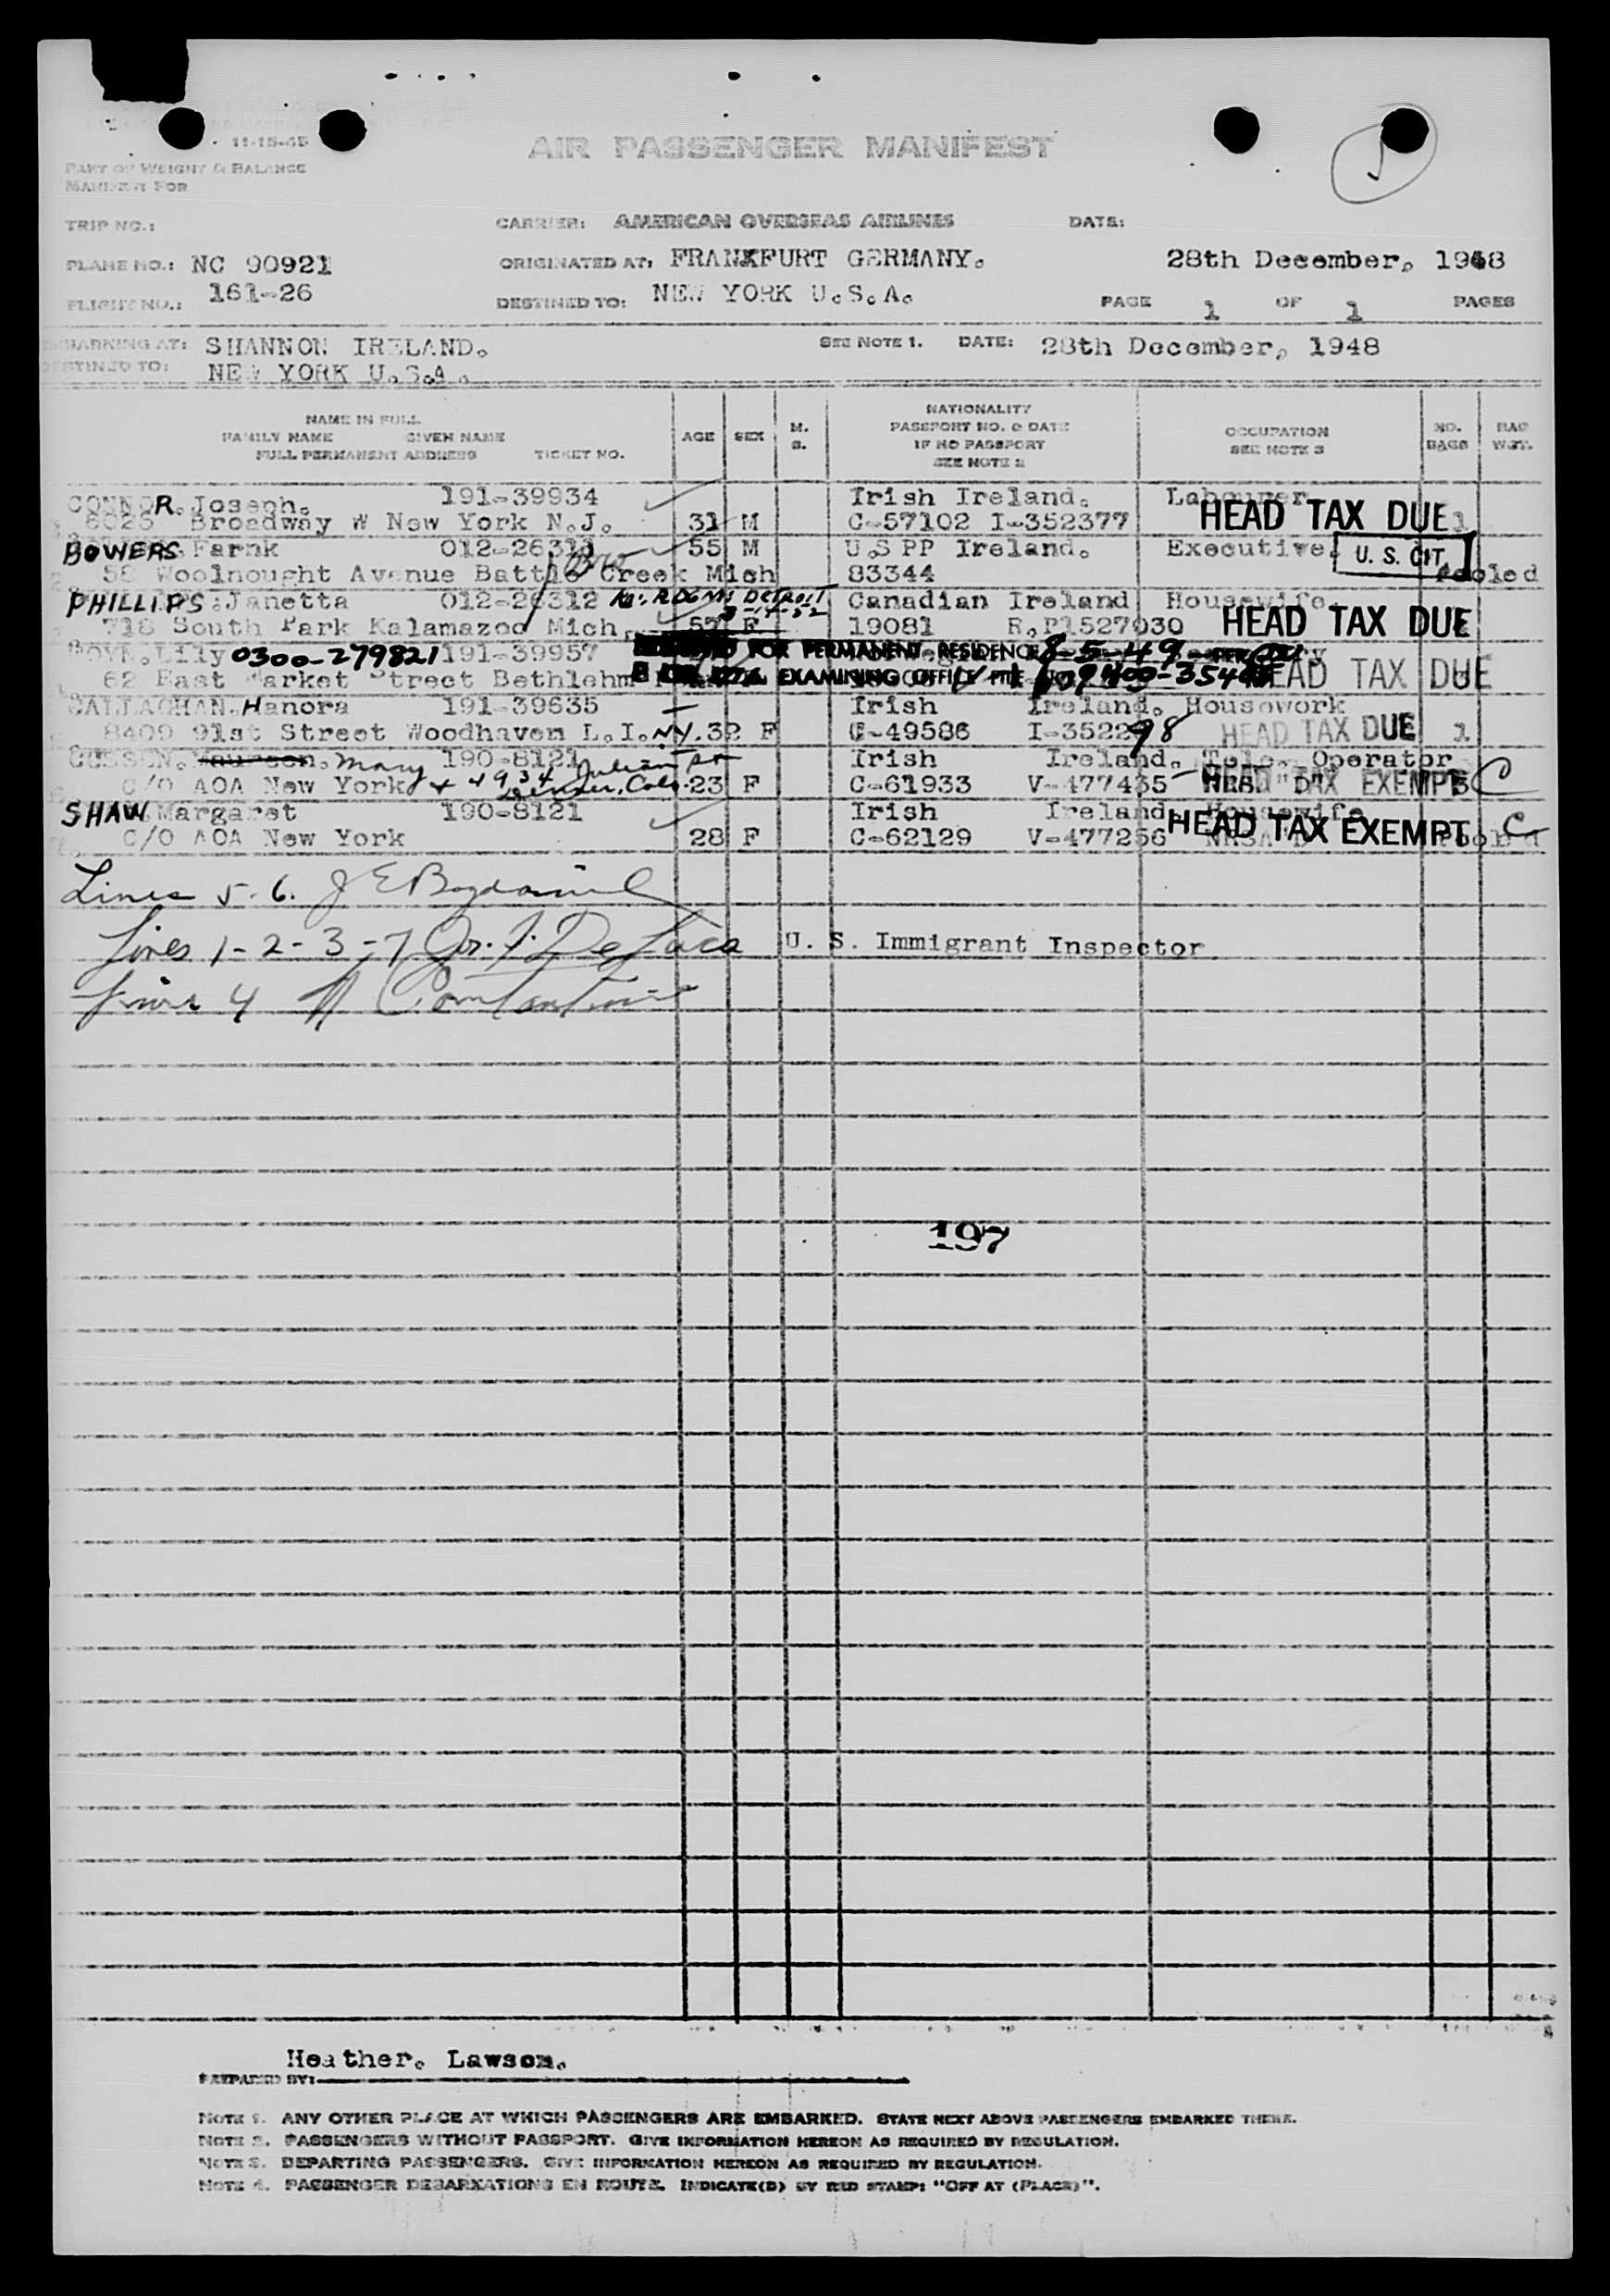 11-15-45
PART OF WEIGHT & BALANCE
MANIFEST FOR
AIR PASSENGER MANIFEST
TRIP NO.:
CARRIER: AMERICAN OVERSEAS AIRLINES
DATE:
PLANE NO.: NC 90921
ORIGINATED AT: FRANKFURT GERMANY.
28th December, 1948
FLIGHT NO.: 161-26
DESTINED TO: NEW YORK U.S.A.
PAGE 1 OF 1 PAGES
EMBARKING AT: SHANNON IRELAND.
SEE NOTE 1. DATE: 28th December, 1948
DESTINED TO: NEW YORK U.S.A.
NAME IN FULL
FAMILY NAME GIVEN NAME
FULL PERMANENT ADDRESS TICKET NO.
AGE SEX M. S.
NATIONALITY
PASSPORT NO. & DATE
IF NO PASSPORT
SEE NOTE 2
OCCUPATION
SEE NOTE 3
NO. BAGS
BAG WGT.
CONNOR. Joseph. 191-39934 Irish Ireland. Labourer
6025 Broadway W New York N.J. 31 M C-57102 I-352377 HEAD TAX DUE 1
BOWERS Farnk 012-26313 55 M U.S PP Ireland. Executive. U. S. CIT.
58 Woolnought Avenue Battle Creek Mich 83344 Pooled
PHILLIPS. Janetta 012-26312 DETROIT Canadian Ireland Housewife
718 South Park Kalamazoo Mich. 57 F 19081 R.P1527030 HEAD TAX DUE
Lily 0300-279821 191-39957 FOR PERMANENT RESIDENCE 8-5-49 PER
62 East Market Street Bethlehm EXAMINING OFFICE HEAD TAX DUE
CALLAGHAN. Hanora 191-39635 Irish Ireland. Housework
8409 91st Street Woodhaven L.I. N.Y. 32 F C-49586 I-352298 HEAD TAX DUE 1
Mary 190-8121 Irish Ireland. Tele. Operator
C/O AOA New York + 4934 Julian St Denver, Colo. 23 F C-61933 V-477435 HEAD TAX EXEMPT C
SHAW Margaret 190-8121 Irish Ireland. Housewife
C/O AOA New York 28 F C-62129 V-477256 HEAD TAX EXEMPT C
Lines 5-6.
Lines 1-2-3-7 U. S. Immigrant Inspector
Line 4
197
Heather. Lawson.
PREPARED BY:
NOTE 1. ANY OTHER PLACE AT WHICH PASSENGERS ARE EMBARKED. STATE NEXT ABOVE PASSENGERS EMBARKED THERE.
NOTE 2. PASSENGERS WITHOUT PASSPORT. GIVE INFORMATION HEREON AS REQUIRED BY REGULATION.
NOTE 3. DEPARTING PASSENGERS. GIVE INFORMATION HEREON AS REQUIRED BY REGULATION.
NOTE 4. PASSENGER DEBARKATIONS EN ROUTE. INDICATE(D) BY RED STAMP: "OFF AT (PLACE)".